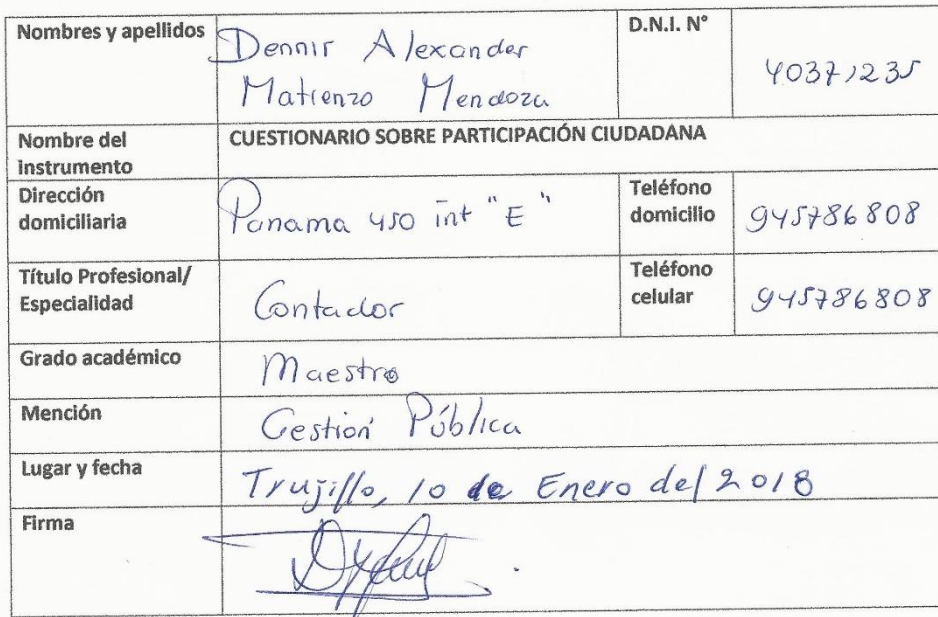 Nombres y apellidos
Dennir Alexander
Matienzo Mendoza
D.N.I. N°
40371235
Nombre del
instrumento
CUESTIONARIO SOBRE PARTICIPACIÓN CIUDADANA
Dirección
domiciliaria
Panama 450 int "E"
Teléfono
domicilio
945786808
Título Profesional/
Especialidad
Contador
Teléfono
celular
945786808
Grado académico
Maestro
Mención
Gestión Pública
Lugar y fecha
Trujillo, 10 de Enero del 2018
Firma